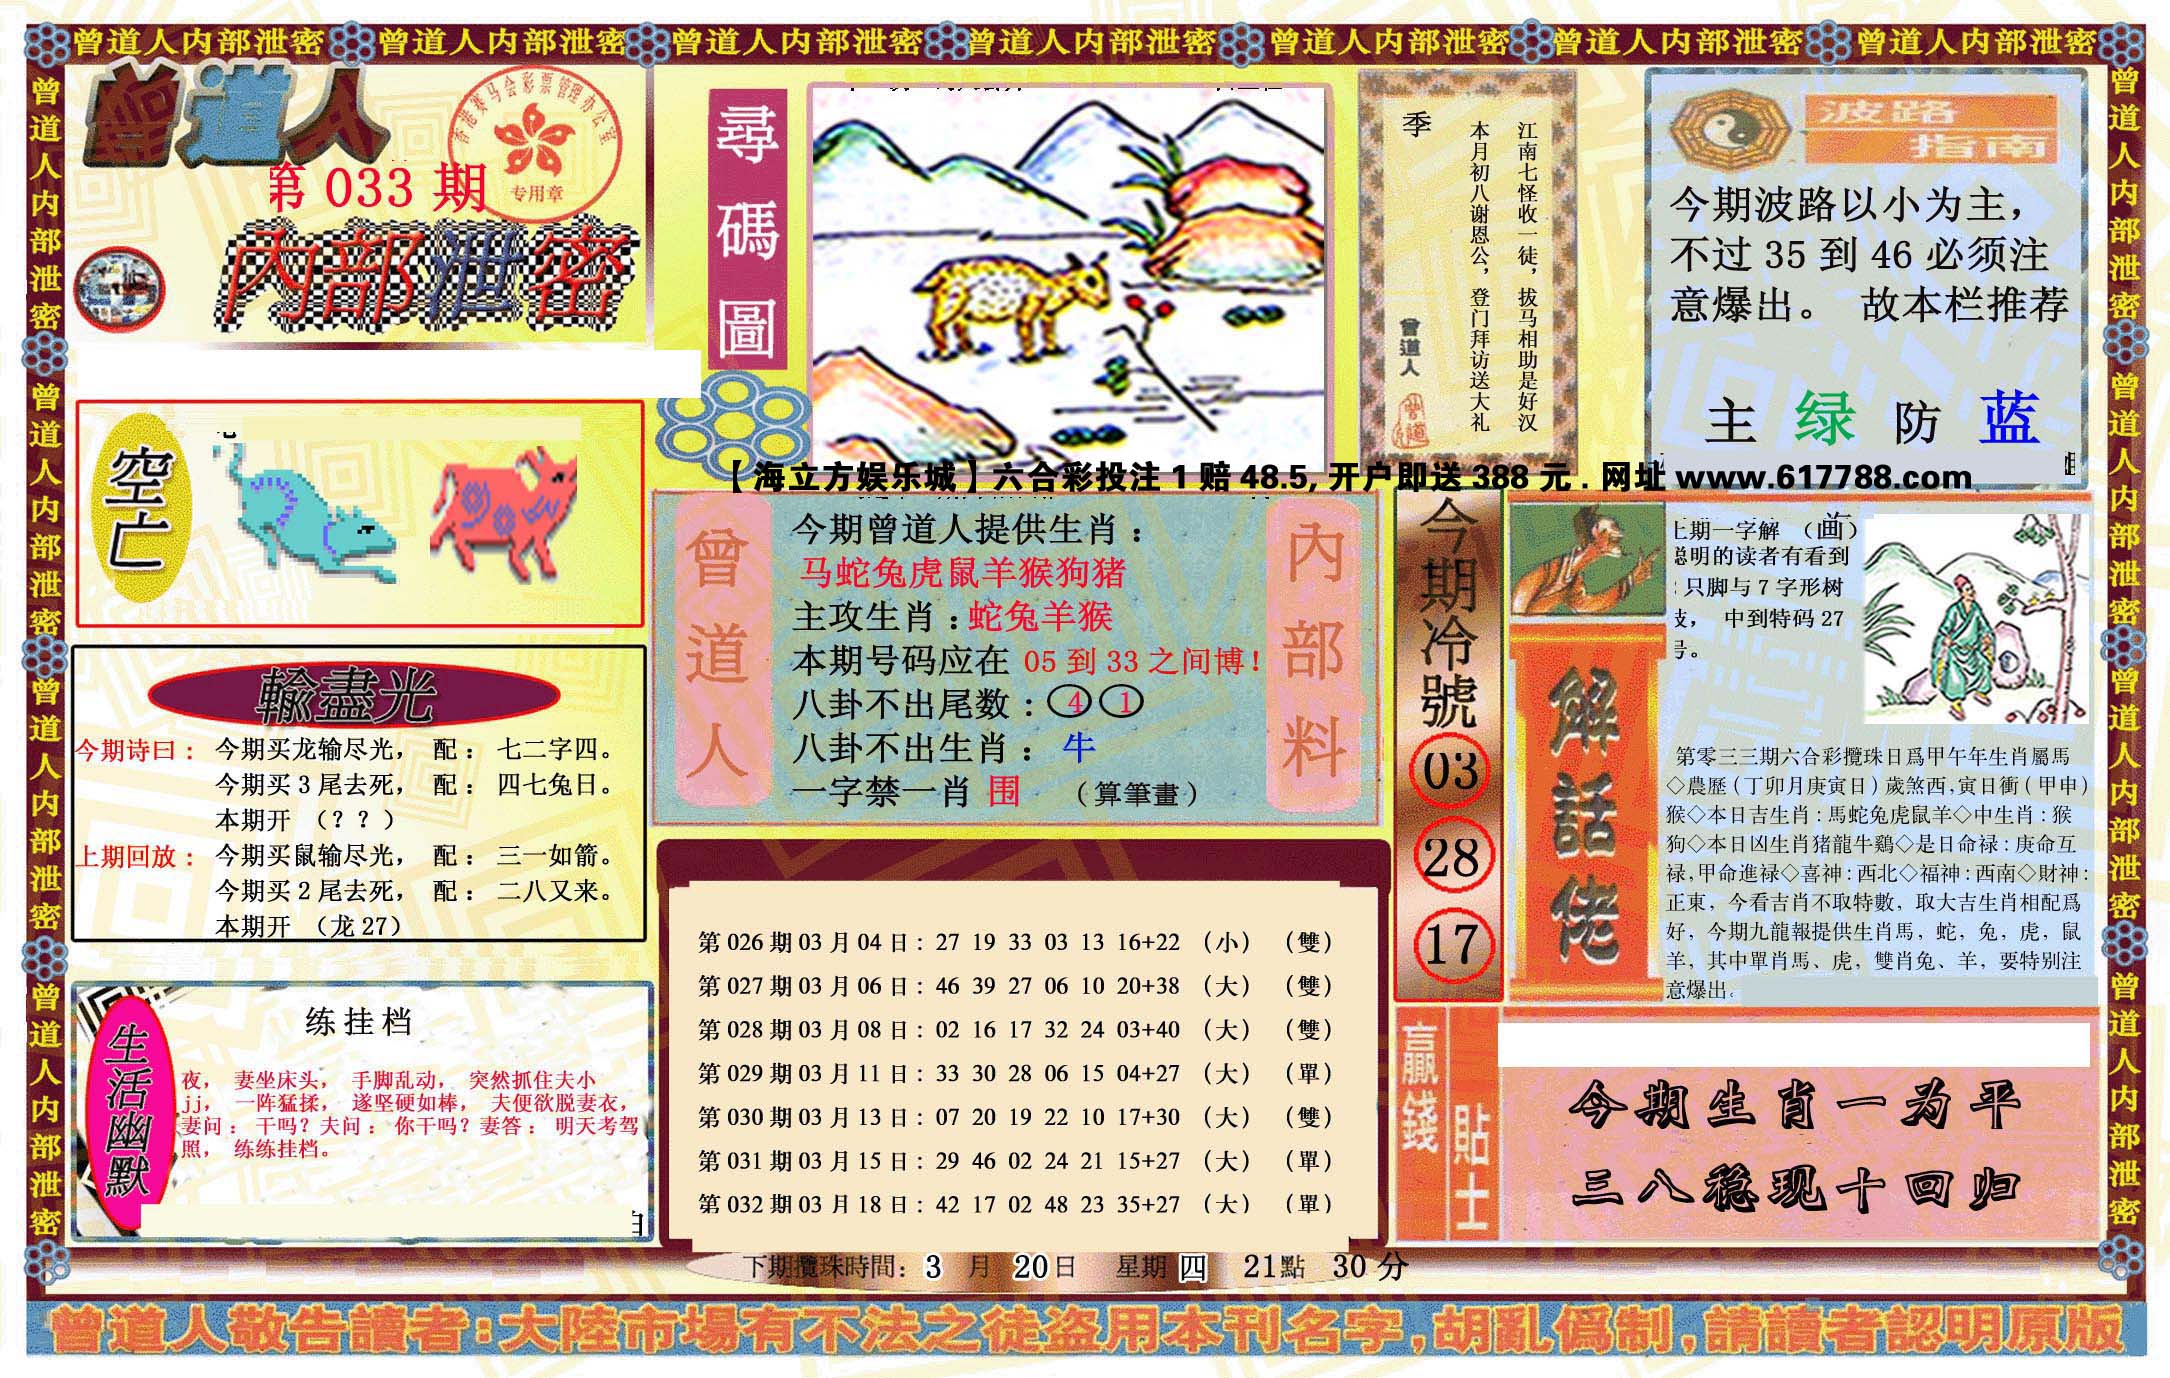 曾道人内部泄密 曾道人内部泄密 曾道人内部泄密 曾道人内部泄密 曾道人内部泄密 曾道人内部泄密 曾道人内部泄密
曾道人内部泄密 曾道人内部泄密 曾道人内部泄密 曾道人内部泄密
曾道人
香港赛马会彩票管理办公室
专用章
第 033 期
内部泄密
空亡
輸盡光
今期诗曰： 今期买龙输尽光， 配： 七二字四。
今期买 3 尾去死， 配： 四七兔日。
本期开 （？？）
上期回放： 今期买鼠输尽光， 配： 三一如箭。
今期买 2 尾去死， 配： 二八又来。
本期开 （龙 27）
生活幽默
练挂档
夜， 妻坐床头， 手脚乱动， 突然抓住夫小
jj， 一阵猛揉， 遂坚硬如棒， 夫便欲脱妻衣，
妻问： 干吗？夫问： 你干吗？妻答： 明天考驾
照， 练练挂档。
尋碼圖
季
江南七怪收一徒，拔马相助是好汉
本月初八谢恩公，登门拜访送大礼
曾道人
波路
指南
今期波路以小为主，
不过 35 到 46 必须注
意爆出。 故本栏推荐
主 绿 防 蓝
【海立方娱乐城】六合彩投注 1 赔 48.5, 开户即送 388 元 . 网址 www.617788.com
曾道人
内部料
今期曾道人提供生肖：
马蛇兔虎鼠羊猴狗猪
主攻生肖：蛇兔羊猴
本期号码应在 05 到 33 之间博！
八卦不出尾数：④ ①
八卦不出生肖： 牛
一字禁一肖 围 （算筆畫）
第 026 期 03 月 04 日： 27 19 33 03 13 16+22 （小） （雙）
第 027 期 03 月 06 日： 46 39 27 06 10 20+38 （大） （雙）
第 028 期 03 月 08 日： 02 16 17 32 24 03+40 （大） （雙）
第 029 期 03 月 11 日： 33 30 28 06 15 04+27 （大） （單）
第 030 期 03 月 13 日： 07 20 19 22 10 17+30 （大） （雙）
第 031 期 03 月 15 日： 29 46 02 24 21 15+27 （大） （單）
第 032 期 03 月 18 日： 42 17 02 48 23 35+27 （大） （單）
下期攪珠時間： 3 月 20日 星期 四 21點 30 分
今期冷號
03
28
17
解話佬
上期一字解 （画）
聪明的读者有看到
只脚与 7 字形树
枝， 中到特码 27
号。
第零三三期六合彩攪珠日爲甲午年生肖屬馬
◇農歷（丁卯月庚寅日）歲煞西,寅日衝（甲申）
猴◇本日吉生肖：馬蛇兔虎鼠羊◇中生肖：猴
狗◇本日凶生肖猪龍牛鷄◇是日命禄：庚命互
禄,甲命進禄◇喜神：西北◇福神：西南◇財神：
正東，今看吉肖不取特數，取大吉生肖相配爲
好，今期九龍報提供生肖馬，蛇，兔，虎，鼠
羊，其中單肖馬、虎，雙肖兔、羊，要特别注
意爆出.
贏錢
貼士
今期生肖一为平
三八稳现十回归
曾道人敬告讀者：大陸市場有不法之徒盗用本刊名字，胡亂僞制，請讀者認明原版